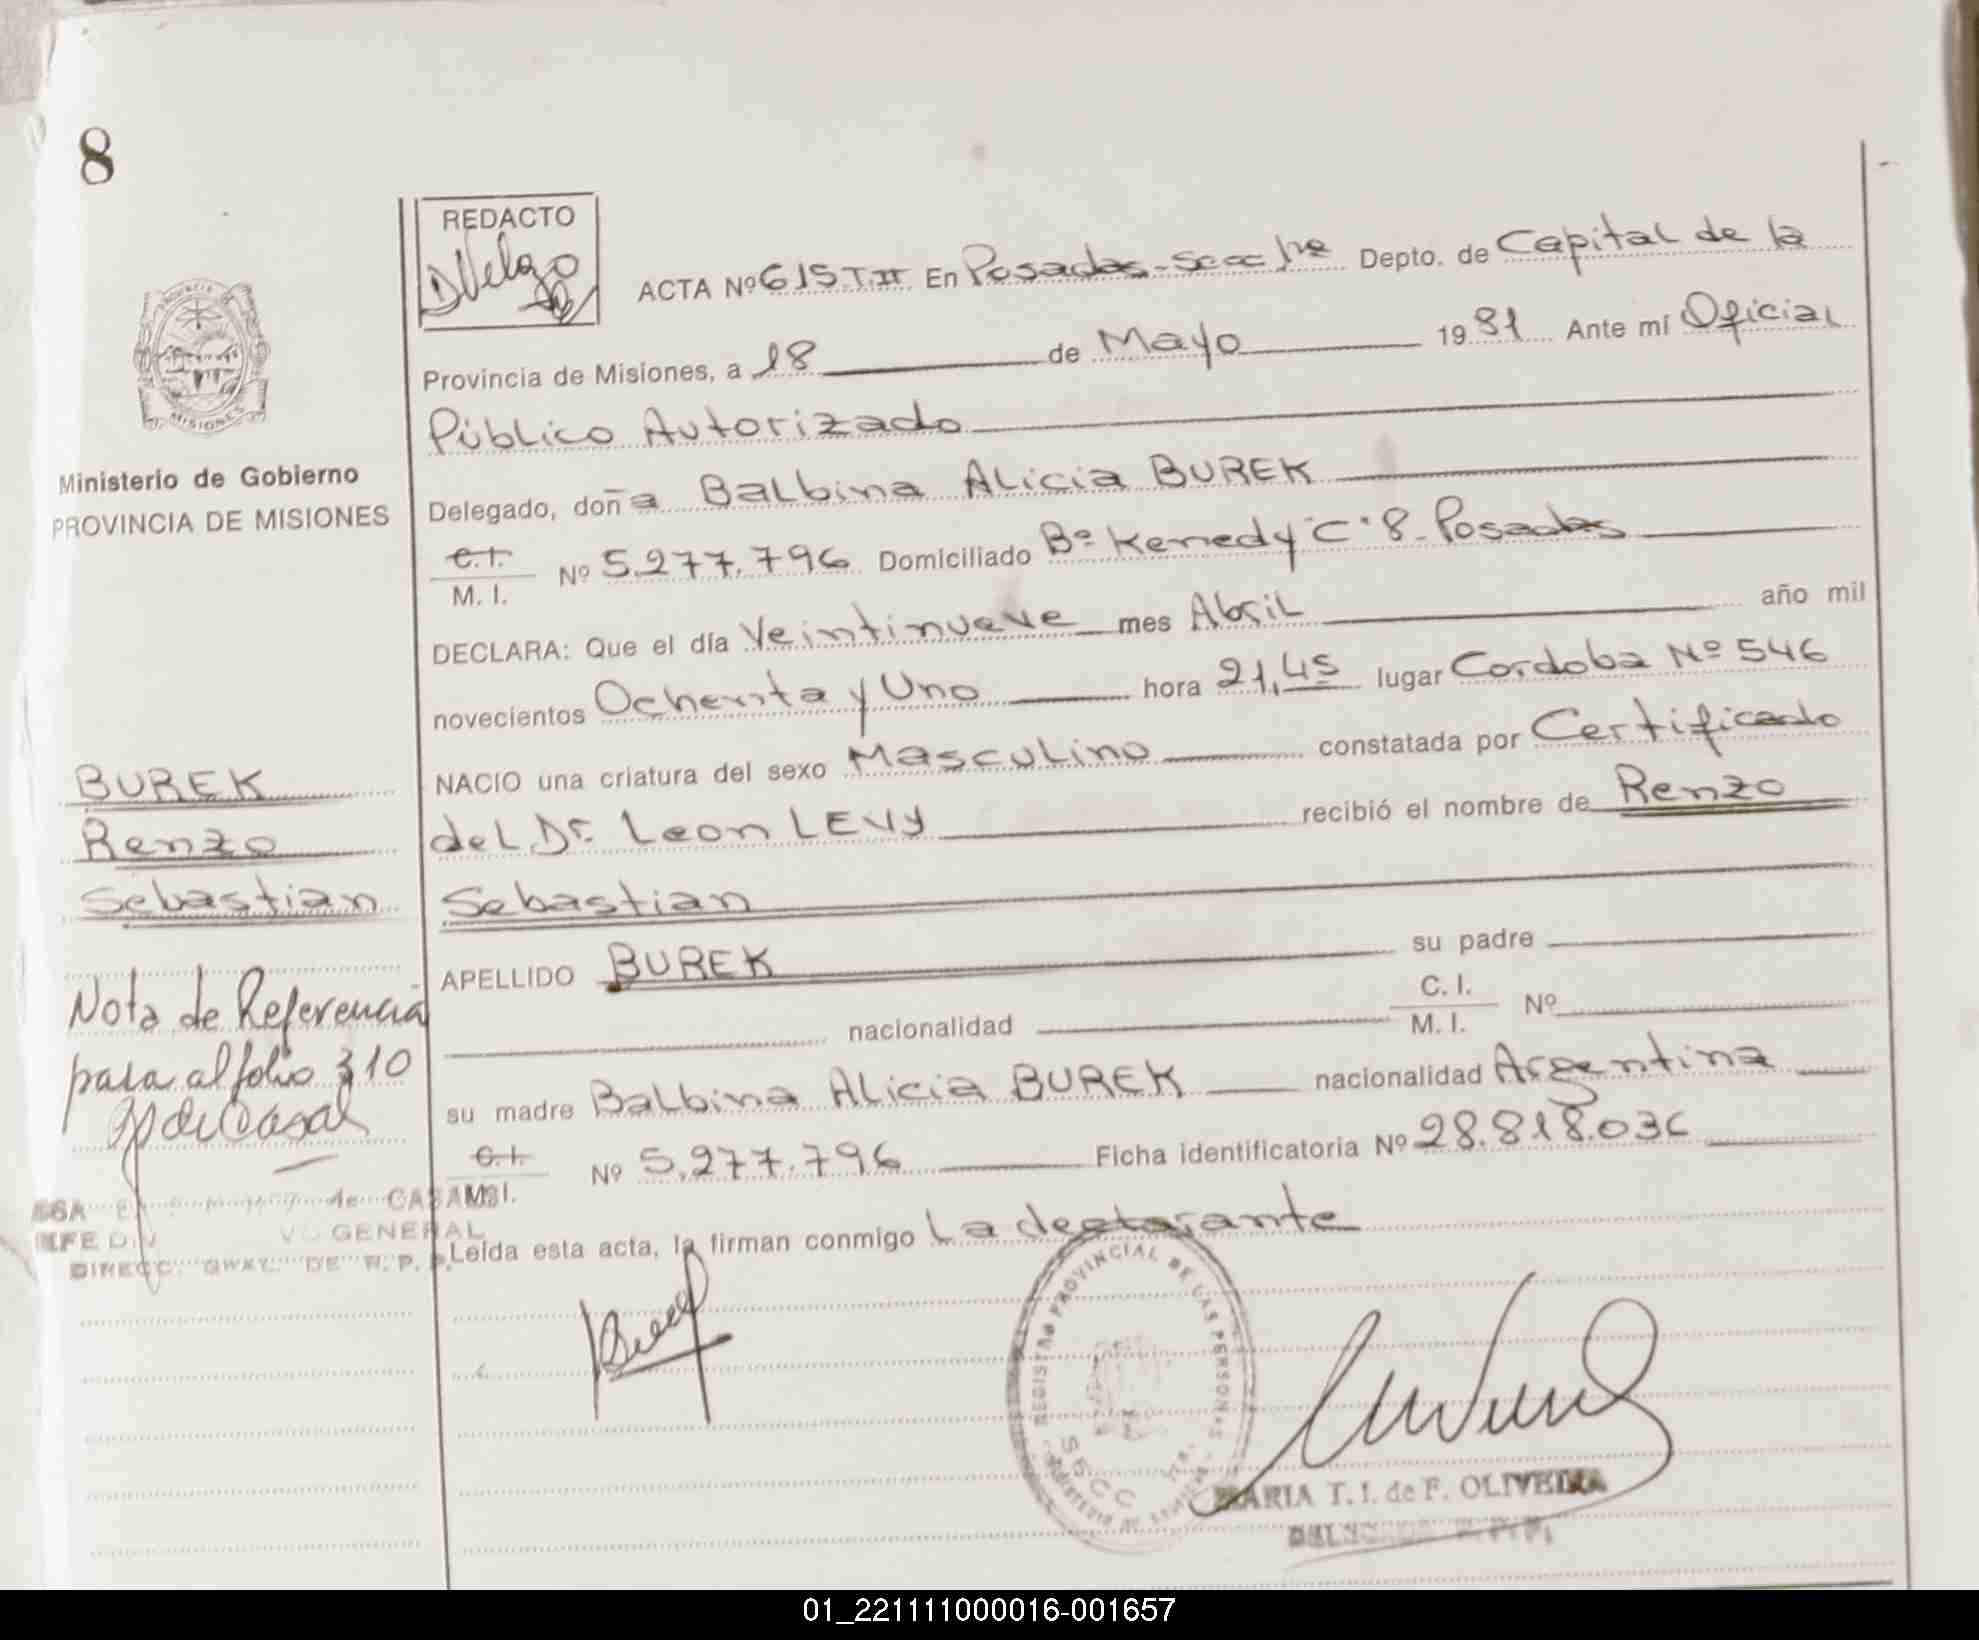 8
REDACTO
DVelazo
ACTA Nº 615.T.II En Posadas-Secc 1ra Depto. de Capital de la
Provincia de Misiones, a 18 de Mayo 1981 Ante mí Oficial
Público Autorizado
Delegado, doña Balbina Alicia BUREK
C.I.
M. I. Nº 5.277.796 Domiciliado Bº Kenedy "C" 8- Posadas
DECLARA: Que el día Veintinueve mes Abril año mil
novecientos Ochenta y Uno hora 21,45 lugar Cordoba Nº 546
NACIO una criatura del sexo Masculino constatada por Certificado
del Dr. Leon LEVY recibió el nombre de Renzo
Sebastian
APELLIDO BUREK su padre
nacionalidad C. I.
M. I. Nº
su madre Balbina Alicia BUREK nacionalidad Argentina
C.I.
M.I. Nº 5.277.796 Ficha identificatoria Nº 28.818.036
Leída esta acta, la firman conmigo La declarante
PROVINCIA
MISIONES
Ministerio de Gobierno
PROVINCIA DE MISIONES
BUREK
Renzo
Sebastian
Nota de Referencia
para al folio 310
de Casal
de CASAL
GENERAL
DIRECC. GRAL. DE R. P. P.
REGISTRO PROVINCIAL DE LAS PERSONAS
SECC 1ra.
MARIA T. I. de F. OLIVEIRA
01_221111000016-001657